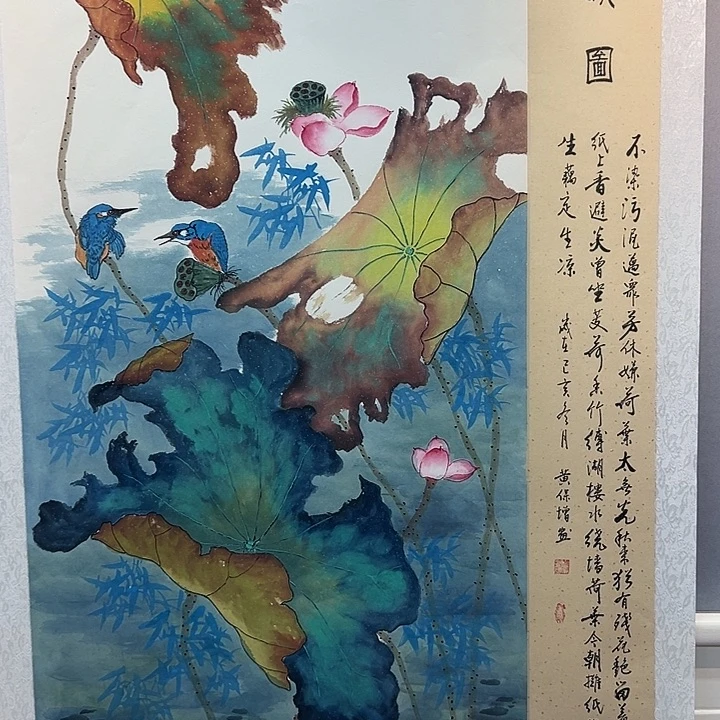 圖
不染污泥邁眾芳休嫌荷葉太無光秋來猶有殘花艷留着
紙上香避炎曾坐芰荷香竹縛湖樓水繞墻荷葉今朝攤紙
生藕花生涼
歲在己亥冬月 黄保增画